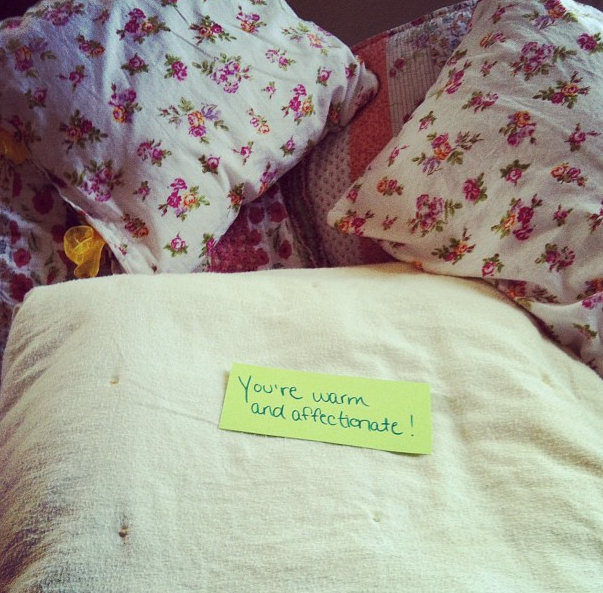 You're warm
and affectionate!